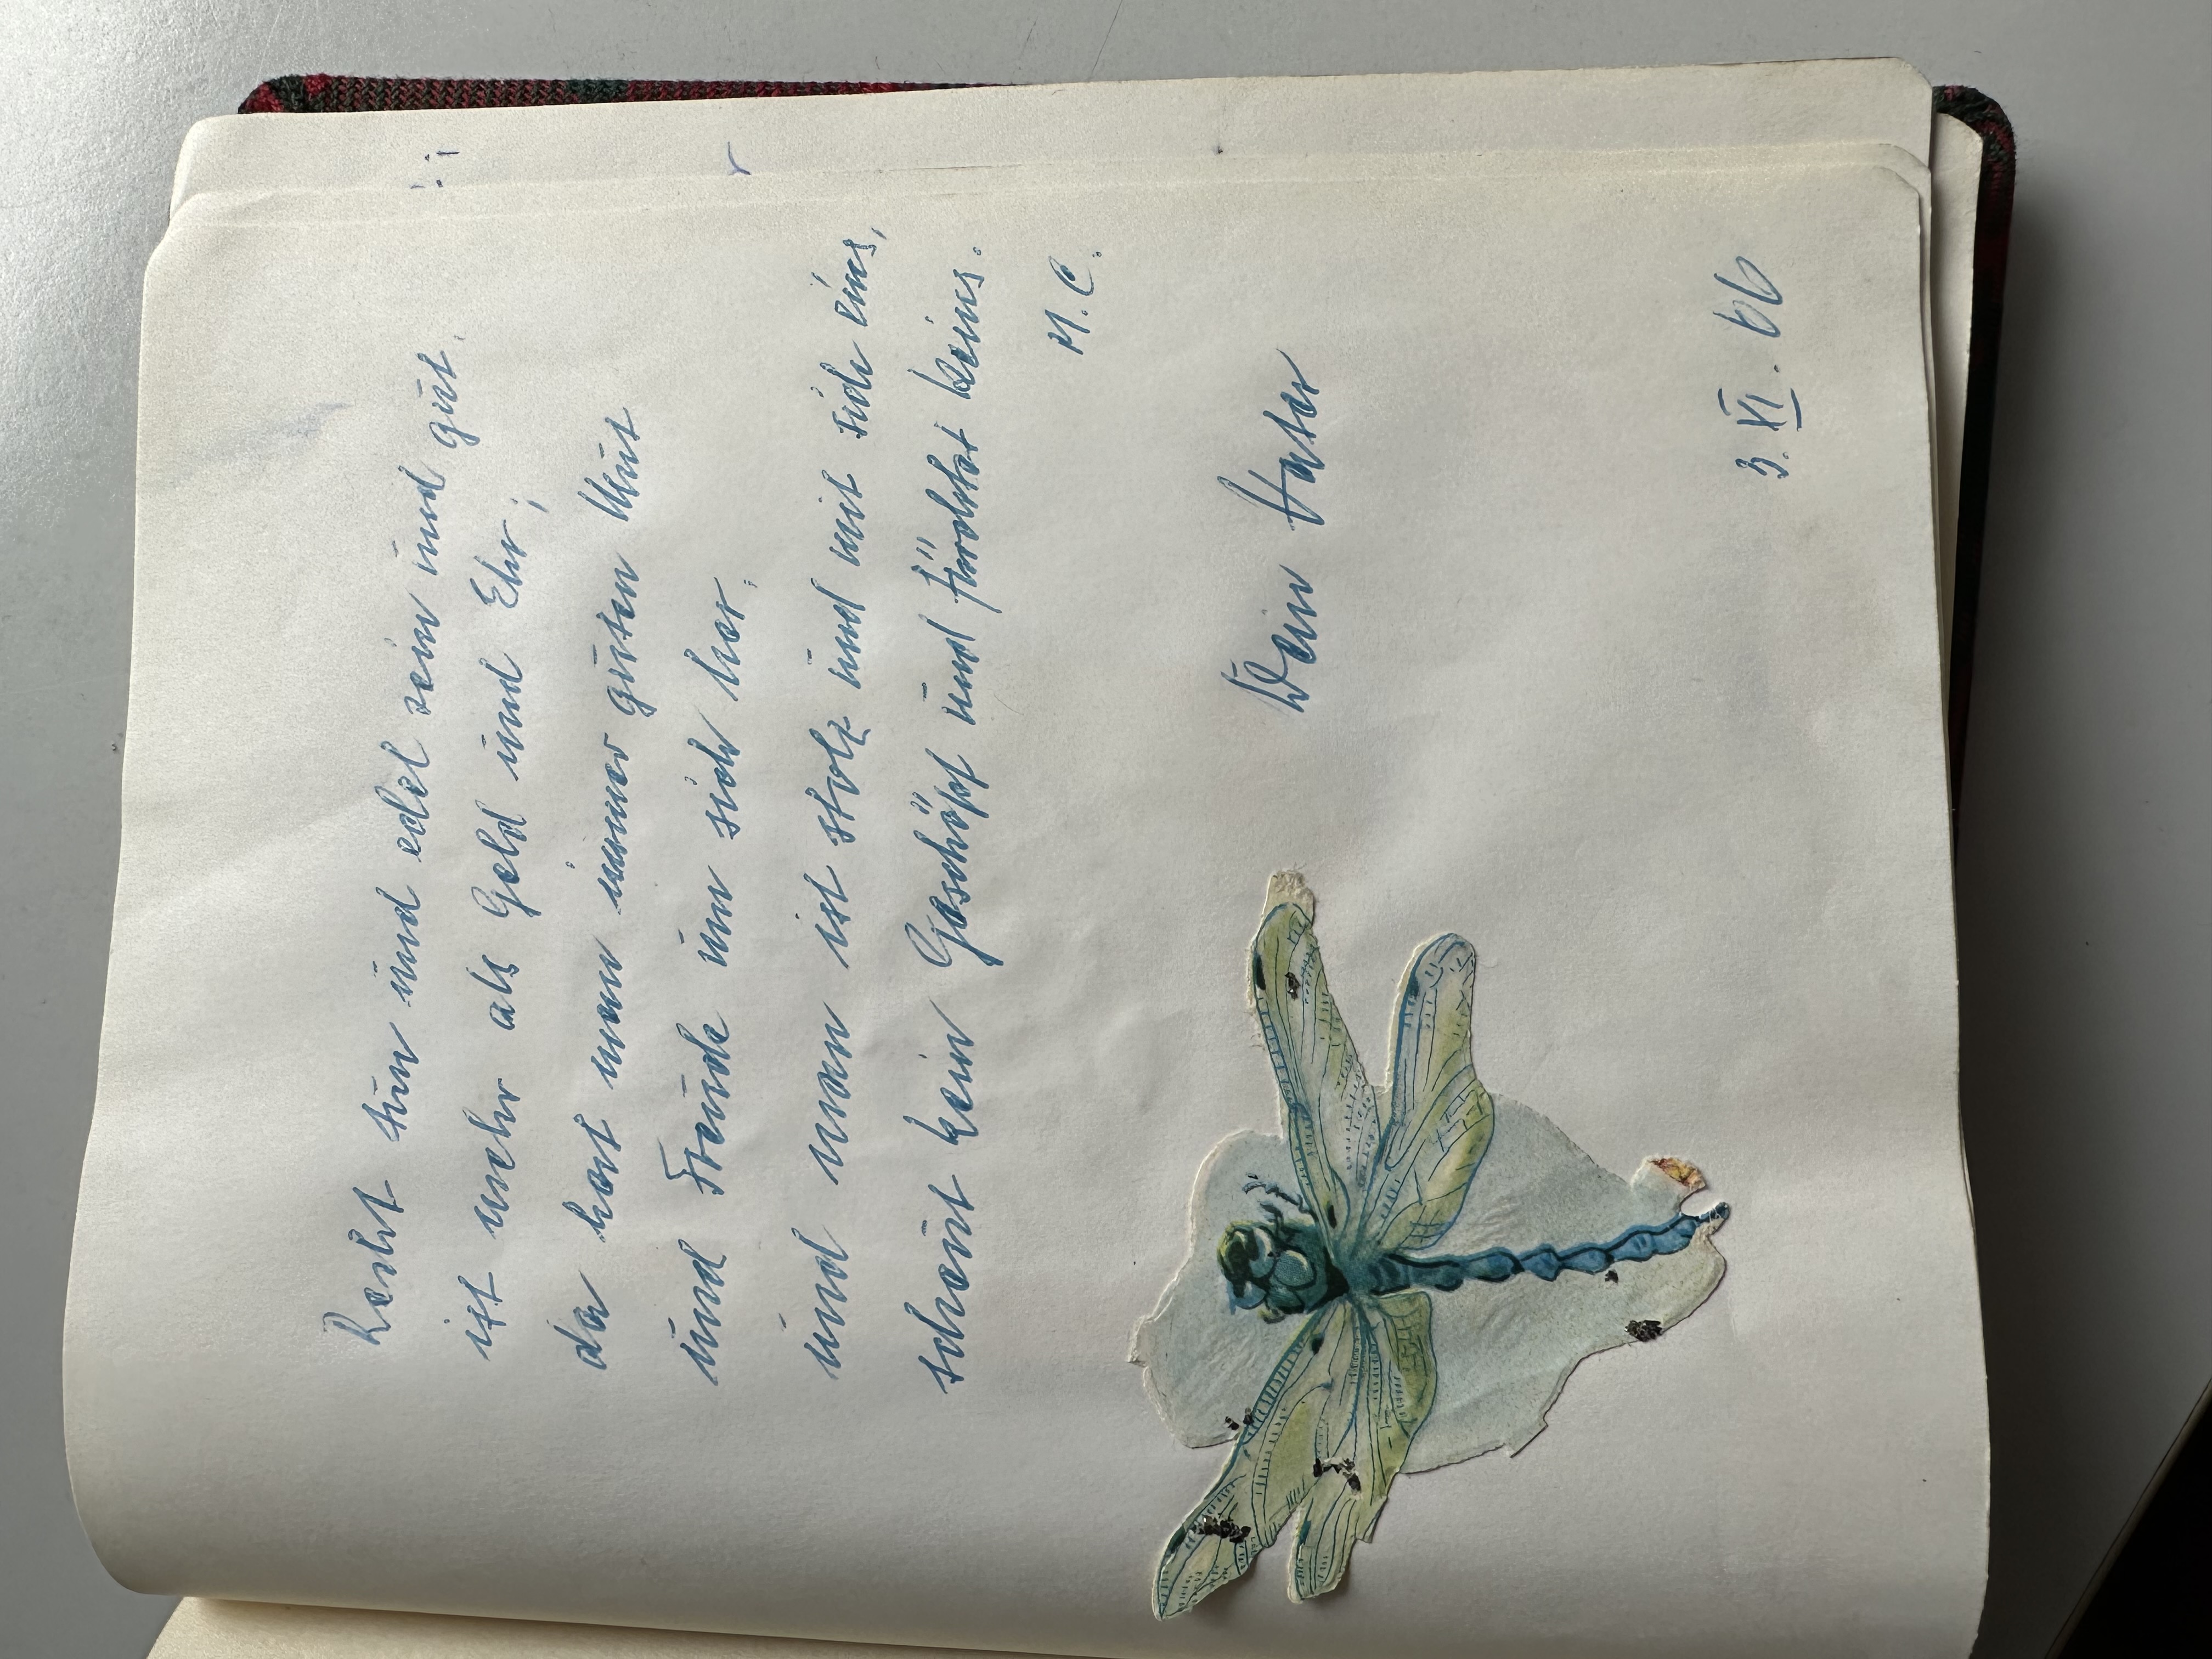 Recht tun und edel sein und gut
ist mehr als Geld und Ehr;
da hat man immer guten Mut
und Freude um sich her.
und man ist stolz und mit sich eins,
scheut kein Geschöpf und fürchtet keins.
M.C.
Dein Vater
3. VI. 66